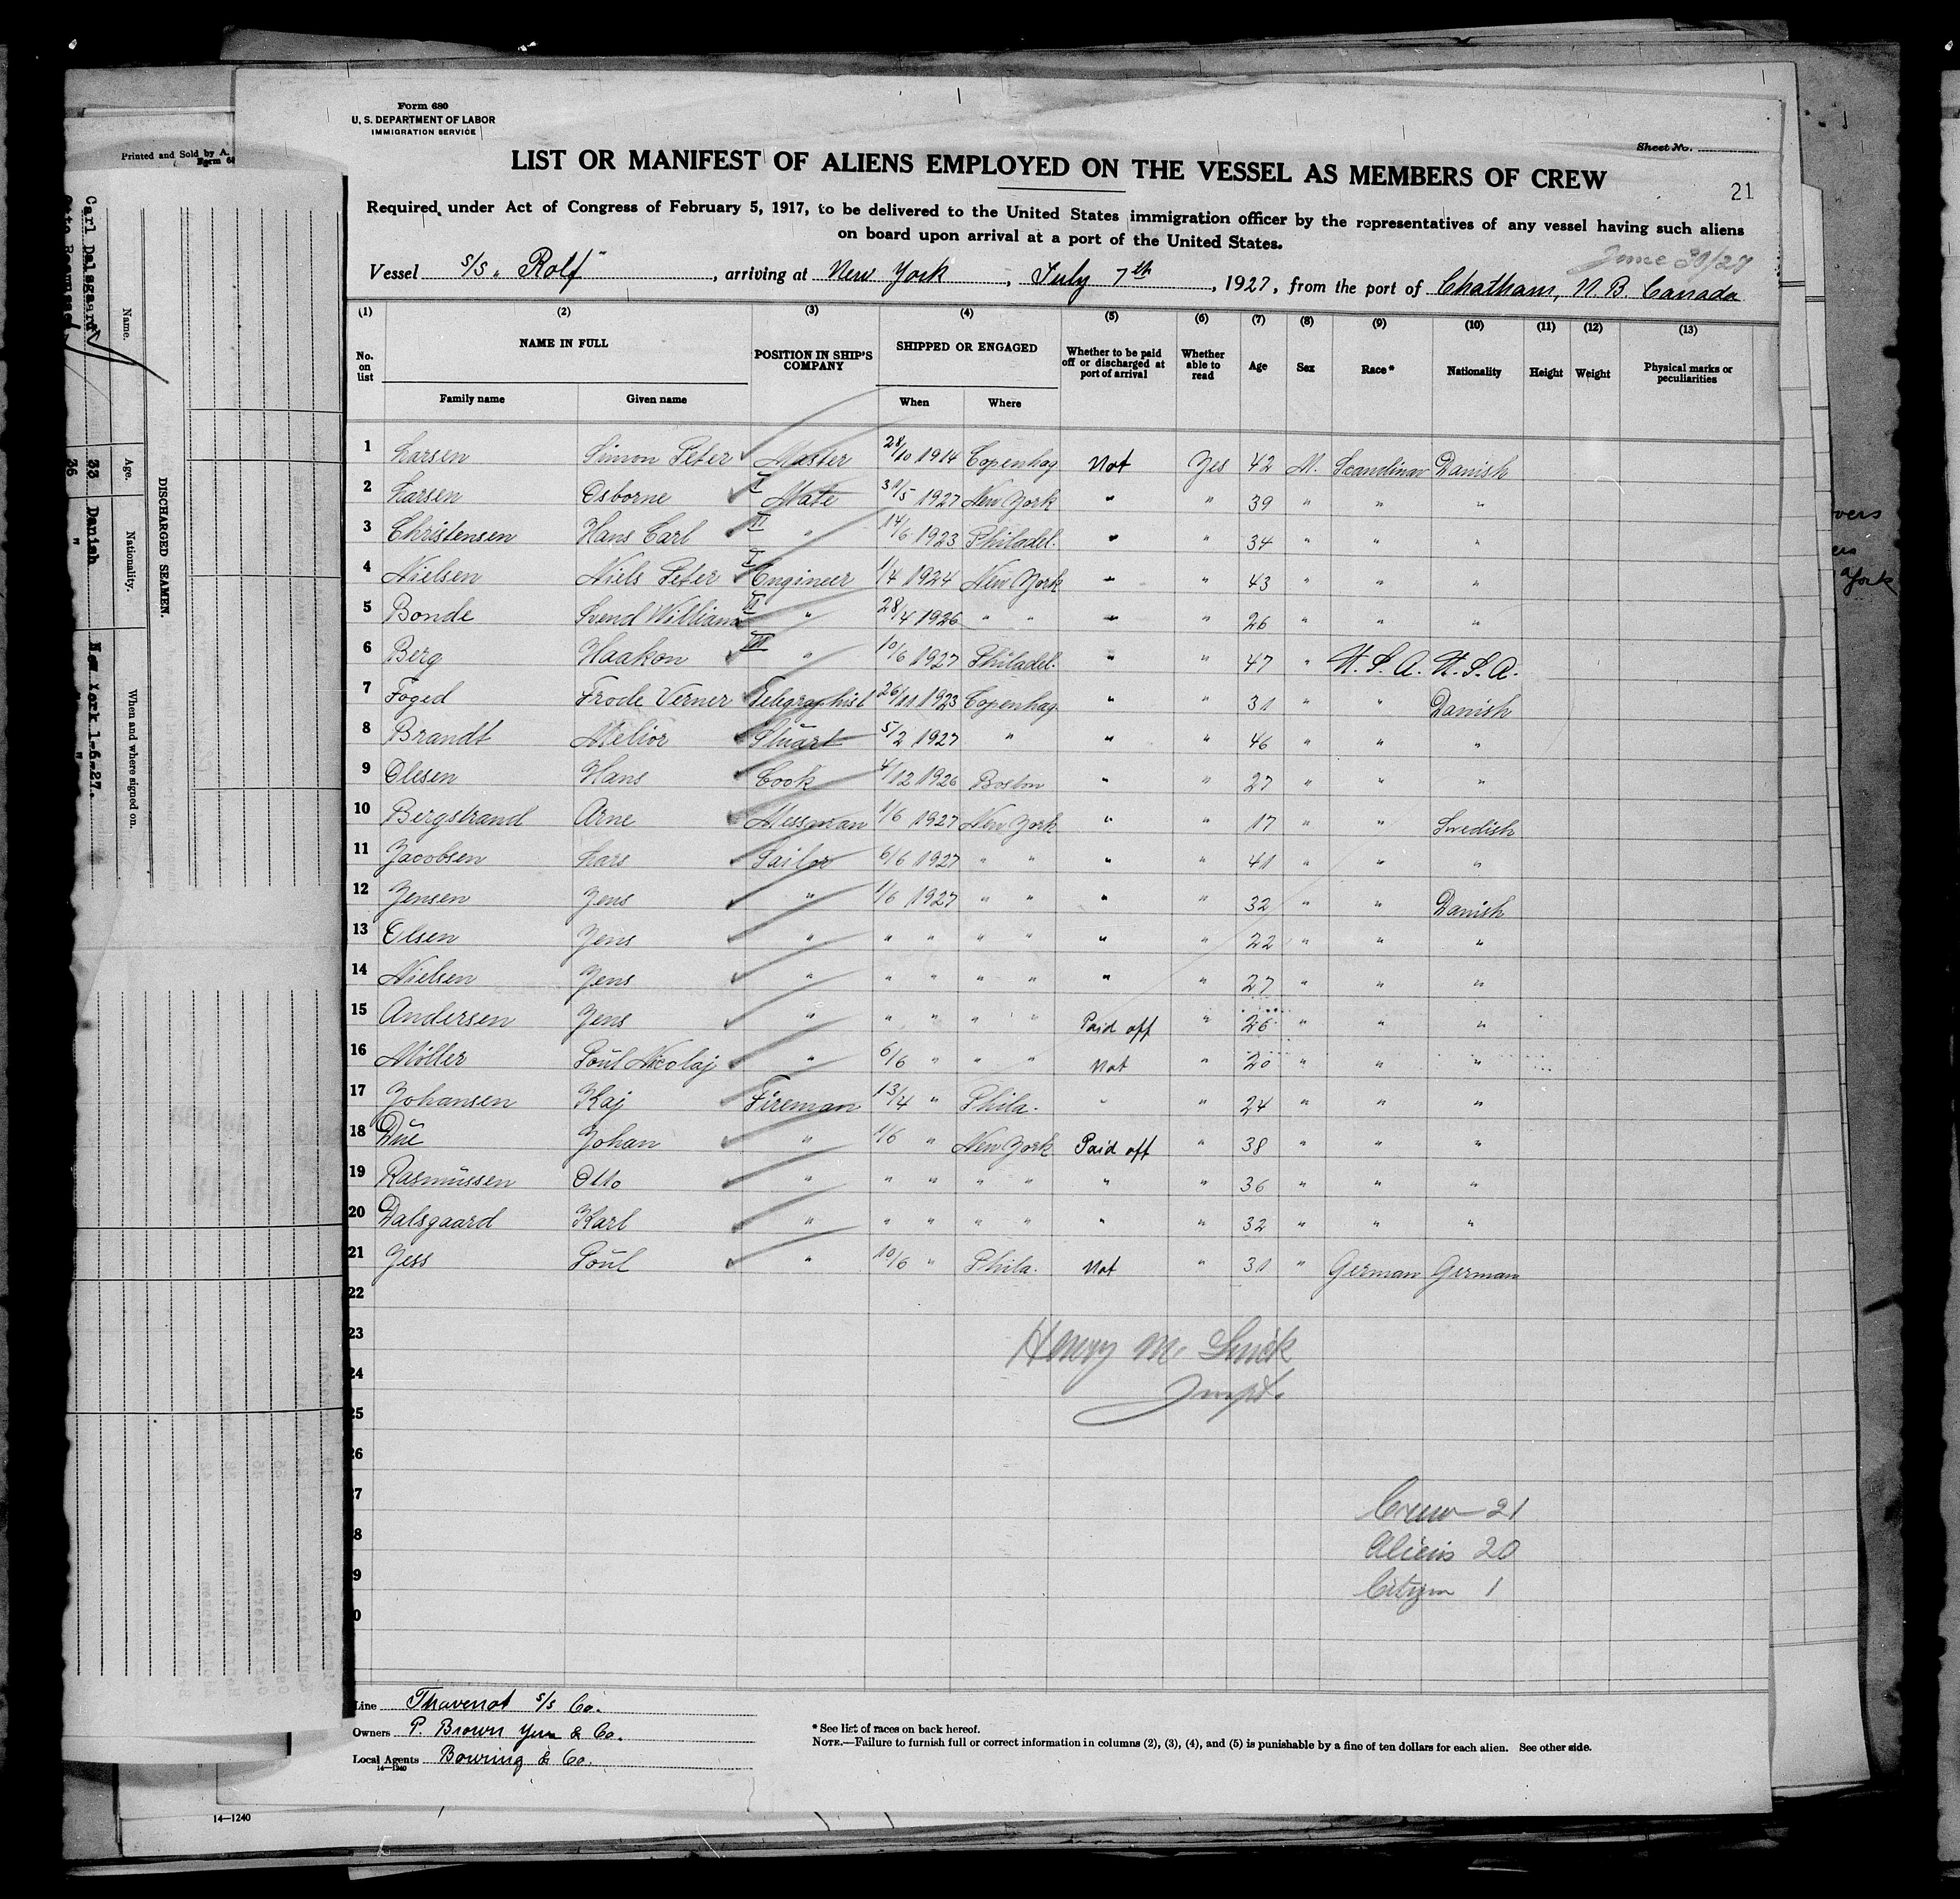 Form 680
U. S. DEPARTMENT OF LABOR
IMMIGRATION SERVICE
Sheet No.
LIST OR MANIFEST OF ALIENS EMPLOYED ON THE VESSEL AS MEMBERS OF CREW
21
Required under Act of Congress of February 5, 1917, to be delivered to the United States immigration officer by the representatives of any vessel having such aliens
on board upon arrival at a port of the United States.
June 30/27
Vessel S/S „ Rolf ", arriving at New York, July 7th, 1927, from the port of Chatham, N. B. Canada
(1) (2) (3) (4) (5) (6) (7) (8) (9) (10) (11) (12) (13)
No. on list NAME IN FULL POSITION IN SHIP'S COMPANY SHIPPED OR ENGAGED Whether to be paid off or discharged at port of arrival Whether able to read Age Sex Race* Nationality Height Weight Physical marks or peculiarities
Family name Given name When Where
1 Larsen Simon Peter Master 28/10 1914 Copenhag Not Yes 42 M. Scandinav Danish
2 Larsen Osborne I Mate 31/5 1927 New York " " 39 " " "
3 Christensen Hans Carl II " 14/6 1923 Philadel. " " 34 " " "
4 Nielsen Niels Peter I Engineer 1/4 1924 New York " " 43 " " "
5 Bonde Svend William II " 28/4 1926 " " " " 26 " " "
6 Berg Haakon III " 10/6 1927 Philadel. " " 47 " U. S. A. U. S. A.
7 Foged Frode Verner Telegraphist 26/11 1923 Copenhag. " " 31 " " Danish
8 Brandt Melior Stuart 5/2 1927 " " " 46 " " "
9 Olesen Hans Cook 4/12 1926 Boston " " 27 " " "
10 Bergstrand Arne Messman 1/6 1927 New York " " 17 " " Swedish
11 Jacobsen Lars Sailor 6/6 1927 " " " " 41 " " "
12 Jensen Jens " 1/6 1927 " " " " 32 " " Danish
13 Olsen Jens " " " " " " " 22 " " "
14 Nielsen Jens " " " " " " " 27 " " "
15 Andersen Jens " " " " " Paid off " 26 " " "
16 Möller Poul Nicolaj " 6/6 " " " Not " 20 " " "
17 Johansen Kaj Fireman 13/4 " Phila. " " 24 " " "
18 Due Johan " 1/6 " New York Paid off " 38 " " "
19 Rasmussen Otto " " " " " " " 36 " " "
20 Dalsgaard Karl " " " " " " " 32 " " "
21 Jess Poul " 10/6 " Phila. Not " 31 " German German
22
23
24
25
26
27
28
29
30
Henry M.
Inspt.
Crew 21
Aliens 20
Citizen 1
Line Thavenot S/S Co.
Owners P. Brown Jun & Co.
Local Agents Bowring & Co.
14—1240
* See list of races on back hereof.
NOTE.—Failure to furnish full or correct information in columns (2), (3), (4), and (5) is punishable by a fine of ten dollars for each alien. See other side.
14—1240
Printed and Sold by A.
Form 68
DISCHARGED SEAMEN.
Name. Age. Nationality. When and where signed on.
Carl Dalsgaard 33 Danish New York 1-6-27.
36 " " "
York